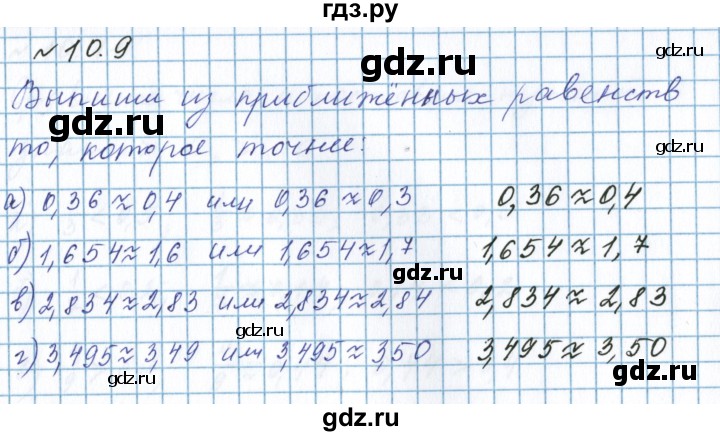 гдз.ру
№10.9
gdz.ru
gdz.ru
Выпиши из приближённых равенств
gdz.ru
то, которое точнее:
gdz.ru
а) 0,36≈0,4 или 0,36≈0,3 0,36≈0,4
gdz.ru
б) 1,654≈1,6 или 1,654≈1,7 1,654≈1,7
в) 2,834≈2,83 или 2,834≈2,84 2,834≈2,83
gdz.ru
г) 3,495≈3,49 или 3,495≈3,50 3,495≈3,50
gdz.ru
gdz.ru
gdz.ru